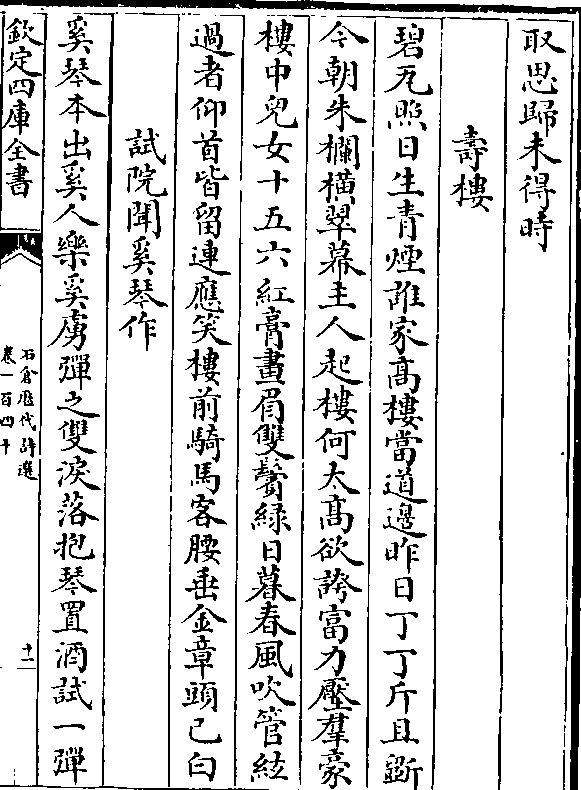 取思歸未得時
壽樓
碧瓦照日生青煙誰家髙樓當道邊昨日丁丁斤且斵
今朝朱欄横翠幕主人起樓何太髙欲誇富力壓羣豪
樓中兒女十五六紅膏畫眉雙鬢緑日暮春風吹管絃
過者仰首皆留連應笑樓前騎馬客腰垂金章頭已白
試院聞奚琴作
奚琴本出奚人樂奚虜彈之雙淚落抱琴置酒試一彈
欽定四庫全書
石倉歷代詩選
卷一百四十
十二